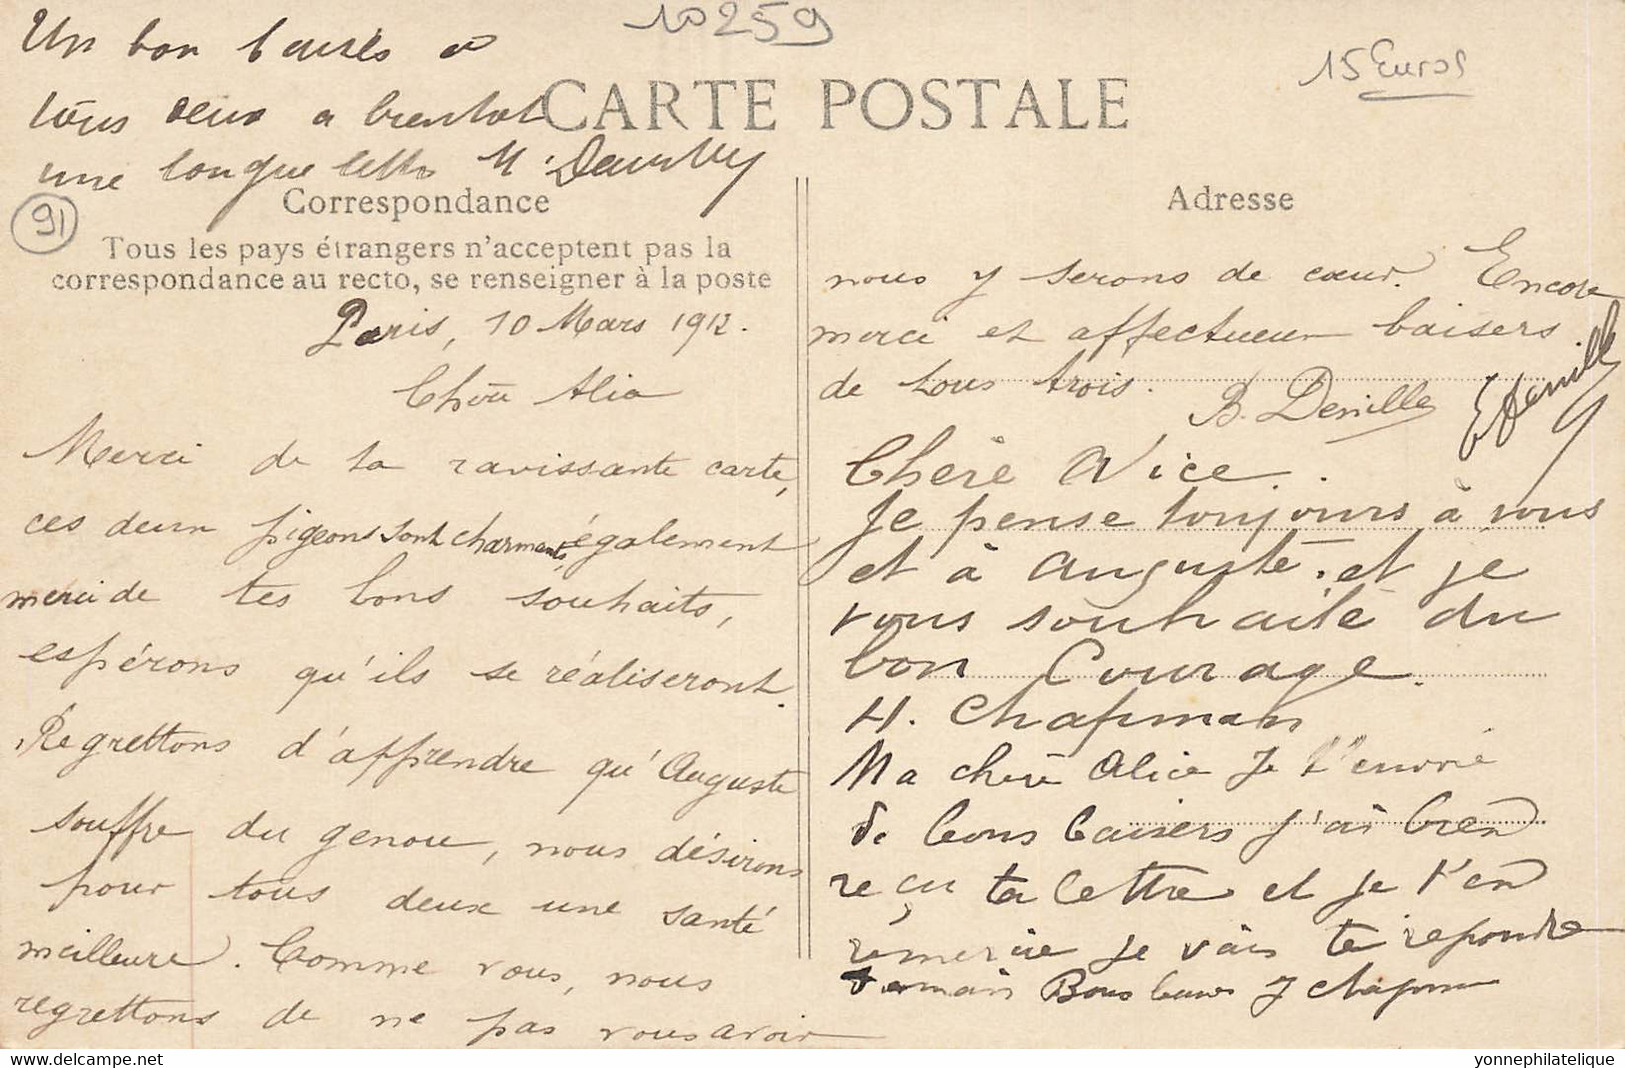 10259
15 Euros
Un bon baisés a
tous deux a bientot
une longue lettre
CARTE POSTALE
91
Correspondance
Tous les pays étrangers n'acceptent pas la
correspondance au recto, se renseigner à la poste
Paris, 10 Mars 1912.
Merci de ta ravissante carte,
ces deux pigeons sont charmants, également
merci de tes bons souhaits,
espérons qu'ils se réaliseront.
Regrettons d'apprendre qu'Auguste
souffre du genou, nous désirons
pour tous deux une santé
meilleure. Comme vous, nous
regrettons de ne pas vous avoir
Adresse
nous y serons de cœur. Encore
merci et affectueux baisers
de tous trois. B. Denille
Chère Alice.
Je pense toujours à vous
et à Auguste. et je
vous souhaite du
bon Courage.
H. Chapman
Ma chère Alice Je t'envoie
de bons baisers j'ai bien
reçu ta lettre et je t'en
remercie je vais te répondre
demain Bons baisers J Chapman
yonnephilatelique